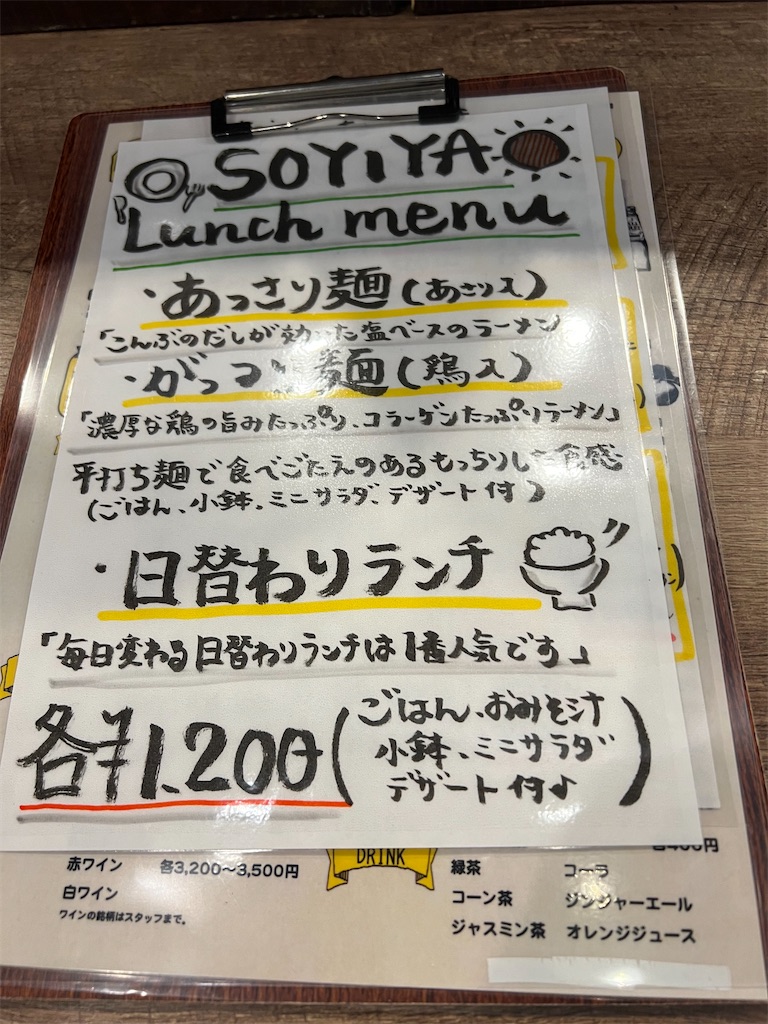 SOYIYA
Lunch menu
・あっさり麺(あさり入)
「こんぶのだしが効いた塩ベースのラーメン
・がっつり麺(鶏入)
「濃厚な鶏の旨みたっぷり、コラーゲンたっぷりラーメン」
平打ち麺で食べごたえのあるもっちりした食感
(ごはん、小鉢、ミニサラダ、デザート付)
・日替わりランチ
「毎日変わる日替わりランチは1番人気です」
各¥1,200
(ごはん、おみそ汁
小鉢、ミニサラダ
デザート付♪)
赤ワイン 各3,200〜3,500円
白ワイン
ワインの銘柄はスタッフまで。
DRINK
緑茶 コーラ
コーン茶 ジンジャーエール
ジャスミン茶 オレンジジュース